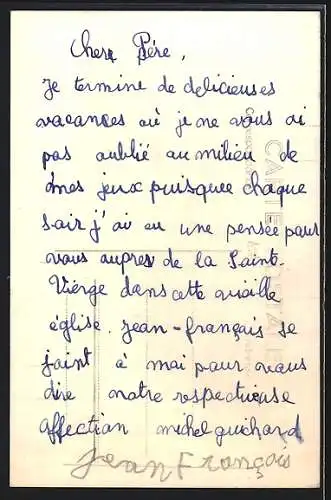 Cher Père,
Je termine de delicieuses
vacances où je ne vous ai
pas oublié au milieu de
mes jeux puisquee chaque
soir j'ai eu une pensée pour
vous aupres de la Saint-
Vierge dans cette vieille
église. Jean-françois se
joint à moi pour vous
dire notre respectueuse
affection michel guichard
Jean François
CARTE POSTALE